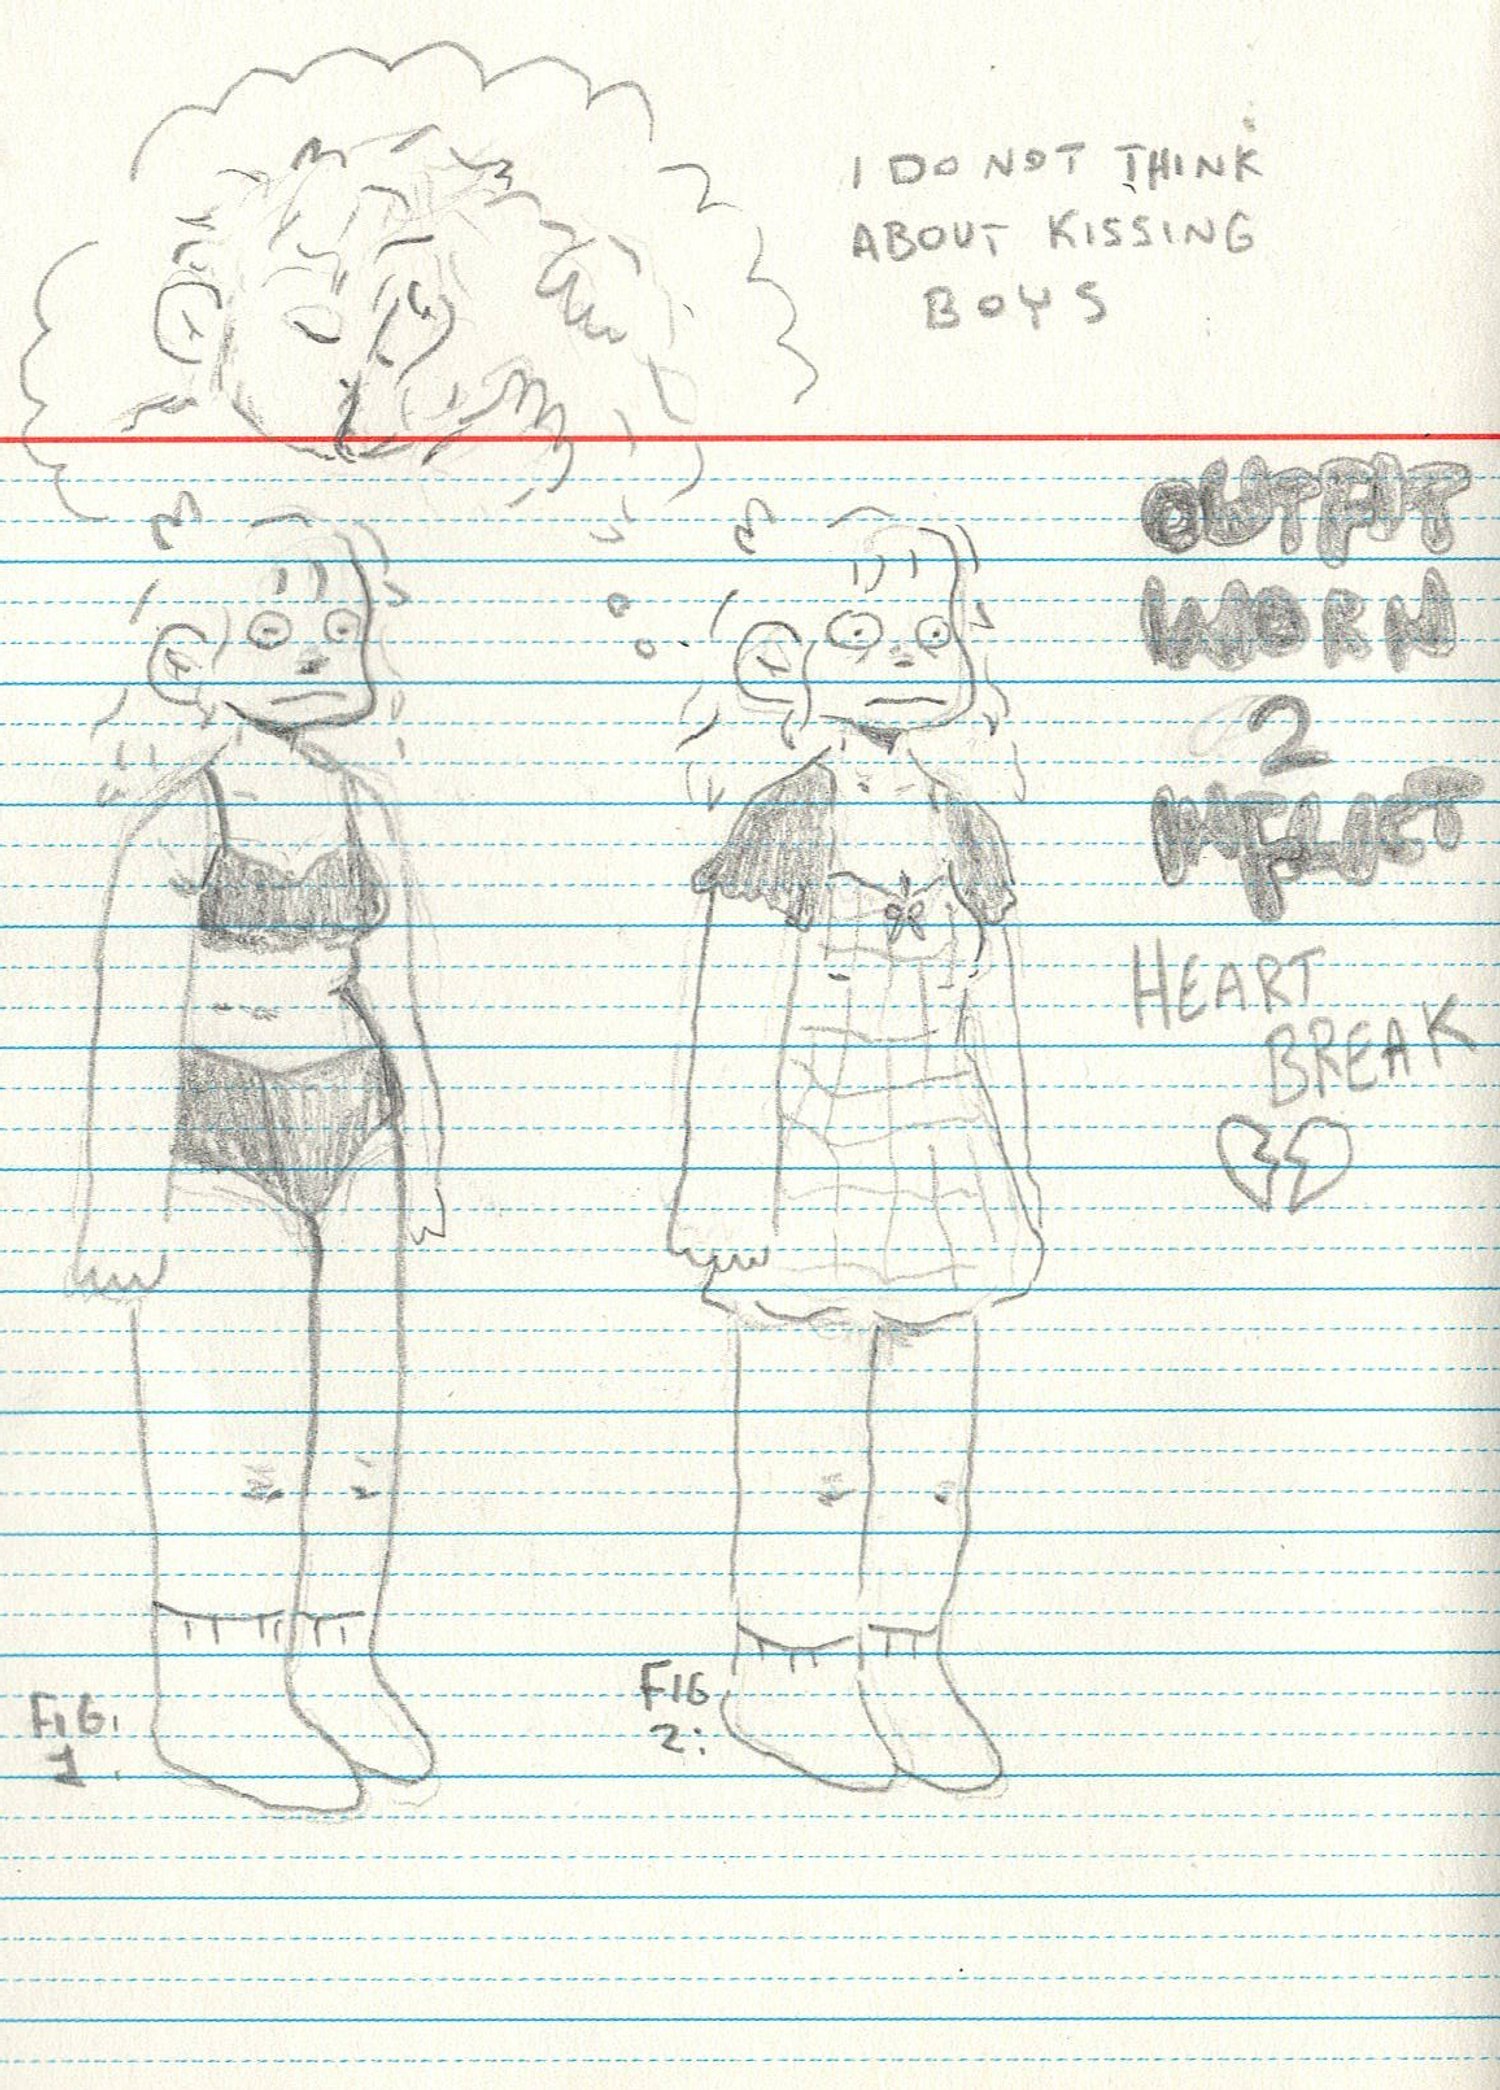 I DO NOT THINK
ABOUT KISSING
BOYS
OUTFIT
WORN
2
INFLICT
HEART
BREAK
FIG.
1.
FIG
2: